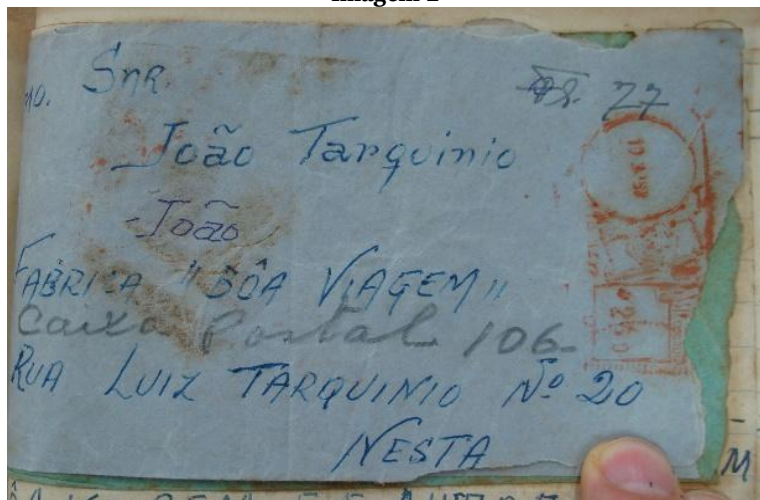 Snr.
João Tarquinio
João
FABRICA "BÔA VIAGEM"
Caixa Postal 106-
RUA LUIZ TARQUINIO Nº 20
NESTA